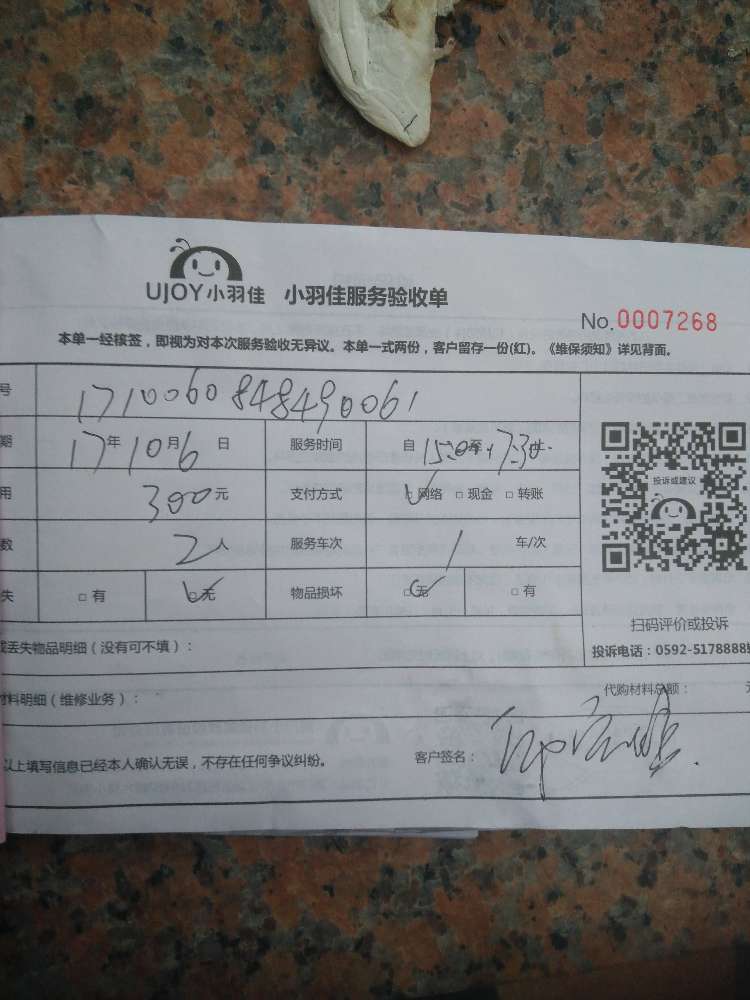 UJOY小羽佳 小羽佳服务验收单
No.0007268
本单一经核签，即视为对本次服务验收无异议。本单一式两份，客户留存一份(红)。《维保须知》详见背面。
号 1710060848490061
期 17年10月6日 服务时间 自15:0至17:30
用 300元 支付方式 网络 □现金 □转账
投诉或建议
数 2人 服务车次 1 车/次
失 □有 □无 物品损坏 □无 □有
扫码评价或投诉
或丢失物品明细（没有可不填）：
投诉电话：0592-5178888
材料明细（维修业务）：
代购材料总额：
以上填写信息已经本人确认无误，不存在任何争议纠纷。 客户签名：